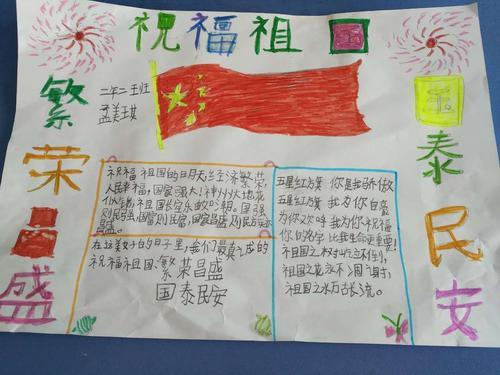 祝福祖国
繁荣昌盛
国泰民安
二年二班
孟美琪
祝福祖国的日月天,经济繁荣,
人民幸福,国家强大!神州大地花
祖国长宁永
则民强,国富则民富,国家昌盛,则民
昌盛。
在这美好的日子里,我们最真诚的
祝福祖国:繁荣昌盛
国泰民安
五星红旗 你是我的骄傲
五星红旗 我为你自豪
为你欢呼 我为你祝福
你的名字 比我生命更重要!
祖国之树屹立不倒,
祖国之花永不凋谢,
祖国之水万古长流。